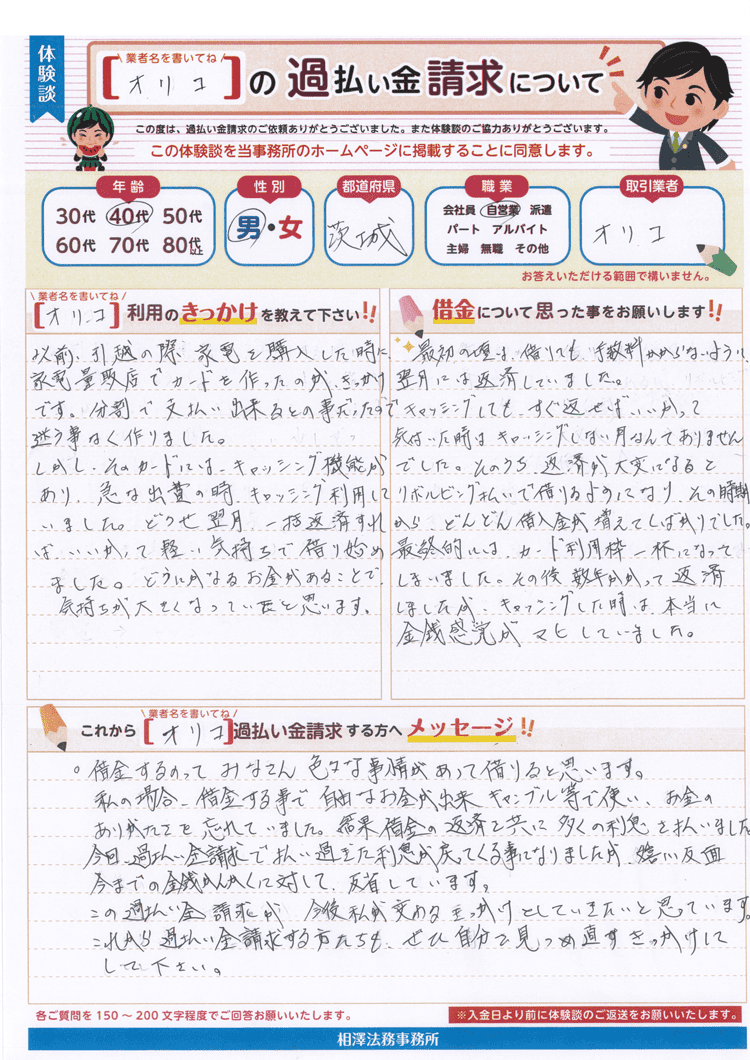 体験談
業者名を書いてね
[オリコ]の過払い金請求について
この度は、過払い金請求のご依頼ありがとうございました。また体験談のご協力ありがとうございます。
この体験談を当事務所のホームページに掲載することに同意します。
年齢
30代 40代 50代
60代 70代 80代以上
性別
男・女
都道府県
茨城
職業
会社員 自営業 派遣
パート アルバイト
主婦 無職 その他
取引業者
オリコ
お答えいただける範囲で構いません。
業者名を書いてね
[オリコ]利用のきっかけを教えて下さい!!
以前、引越の際、家電を購入した時に、
家電量販店でカードを作ったのが、きっかけ
です。分割で支払い出来るとの事だったので
迷う事なく作りました。
しかし、そのカードには、キャッシング機能が
あり、急な出費の時、キャッシング利用して
いました。どうせ翌月、一括返済すれ
ばいいかって軽い気持ちで借り始め
ました。どうにかなるお金があることで、
気持ちが大きくなっていたと思います。
借金について思った事をお願いします!!
最初の頃は、借りても、手数料かからないように、
翌月には返済していました。
キャッシングしても、すぐ返せばいいかって
気付いた時はキャッシングしない月なんてありません
でした。そのうち、返済が大変になると
リボルビング払いで借りるようになり、その時期
から、どんどん借入金が増えてくばかりでした。
最終的には、カード利用枠一杯になって
しまいました。その後、数年かかって返済
しましたが、キャッシングした時は、本当に
金銭感覚がマヒしていました。
業者名を書いてね
これから[オリコ]過払い金請求する方へメッセージ!!
。借金するのって みなさん 色々な事情があって借りると思います。
私の場合、借金する事で自由なお金が出来、ギャンブル等で使い、お金の
ありがたさを忘れていました。結果借金の返済と共に多くの利息を払いました
今回、過払い金請求で払い過ぎた利息が戻ってくる事になりましたが、嬉しい反面
今までの金銭かんかくに対して、反省しています。
この過払い金請求が、今後私が変わるきっかけとしていきたいと思っています。
これから過払い金請求する方たちも、ぜひ自分を見つめ直すきっかけにして
して下さい。
各ご質問を150～200文字程度でご回答お願いいたします。
※入金日より前に体験談のご返送をお願いいたします。
相澤法務事務所